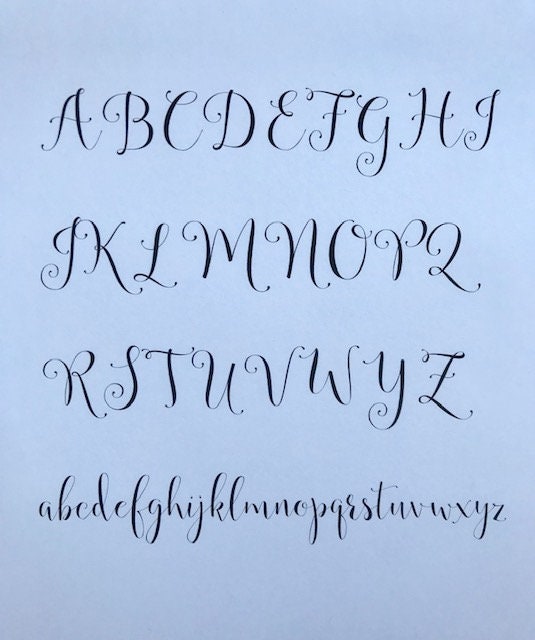 ABCDEFGHI
JKLMNOPQ
RSTUVWYZ
abcdefghijklmnopqrstuvwxyz